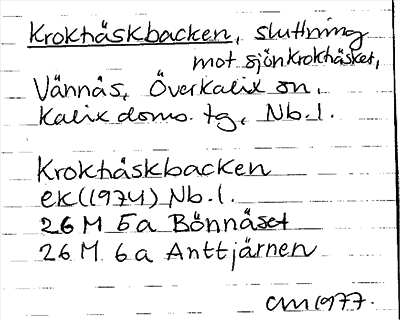 Krokhåskbacken, sluttning
mot sjön Krokhåsket,
Vännäs, Överkalix sn,
Kalix doms. tg, Nb.l.
Krokhåskbacken
ek (1974) Nb.l.
26 M 5a Bönnäset
26 M 6a Anttjärnen
CM 1977.